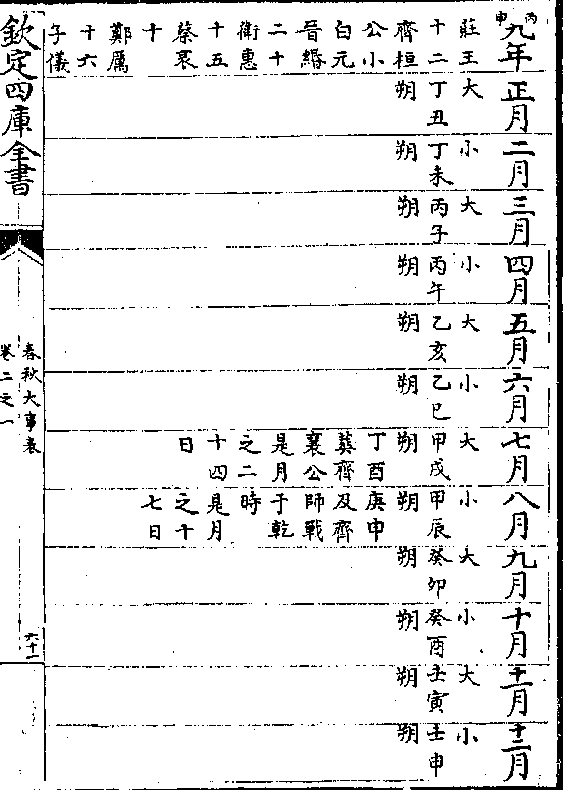 丙申
九年
莊王
十二
齊桓
公小
白元
晉緡
二十
衛惠
十五
蔡哀
十
鄭厲
十六
子儀
正月
大
丁丑
朔
二月
小
丁未
朔
三月
大
丙子
朔
四月
小
丙午
朔
五月
大
乙亥
朔
六月
小
乙巳
朔
七月
大
甲戌
朔
丁酉
葬齊
襄公
是月
之二
十四
日
八月
小
甲辰
朔
庚申
及齊
師戰
于乾
時
是月
之十
七日
九月
大
癸卯
朔
十月
小
癸酉
朔
十一月
大
壬寅
朔
十二月
小
壬申
朔
欽定四庫全書
春秋大事表
卷二之一
六十一